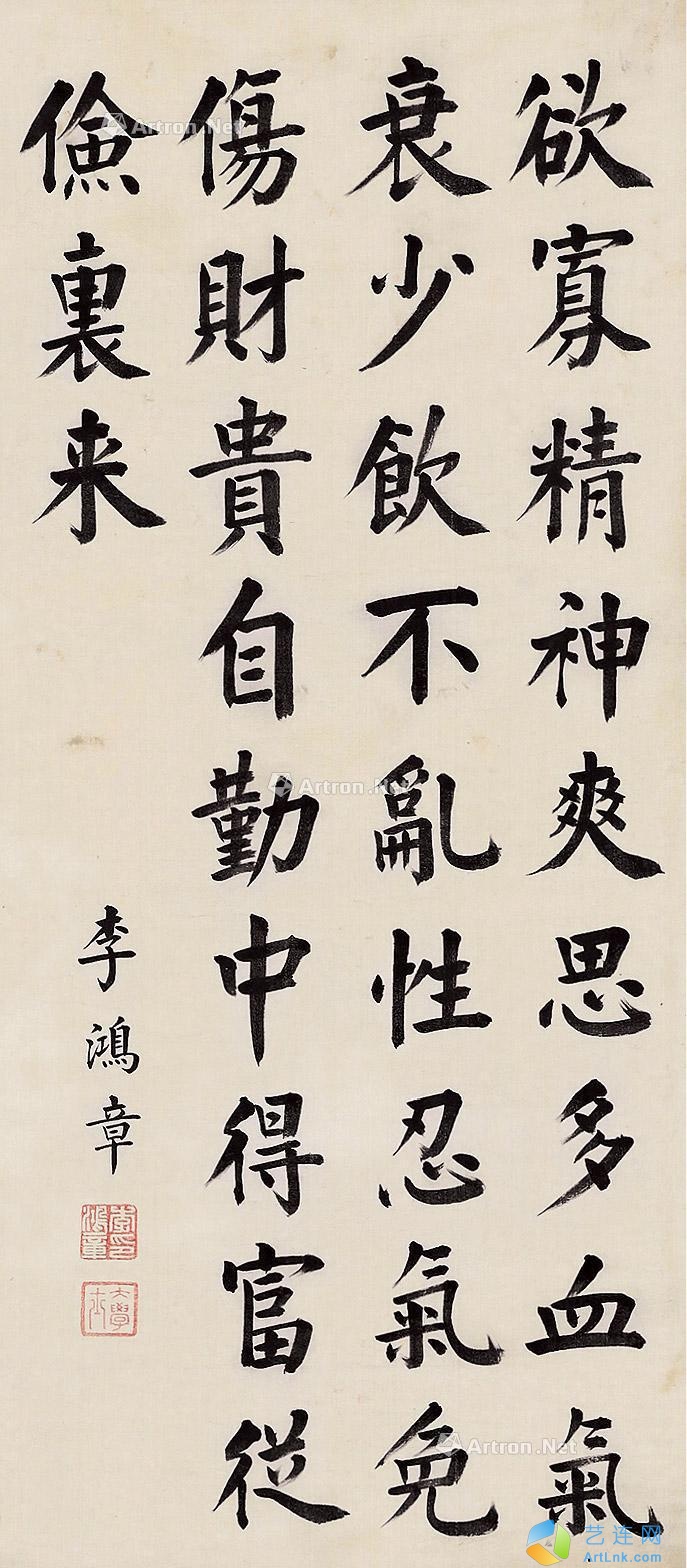 欲寡精神爽思多血氣
衰少飲不亂性忍氣免
傷財貴自勤中得富從
儉裏来
李鴻章
李鴻章印
大學士
Artron.Net
Artron.Net
Artron.Net
艺连网
ArtLnk.com